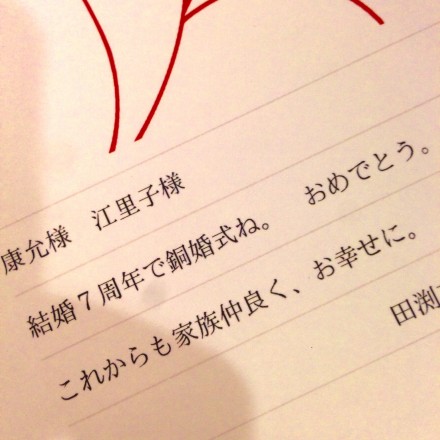 康允様　江里子様
結婚７周年で銅婚式ね。　おめでとう。
これからも家族仲良く、お幸せに。
田渕